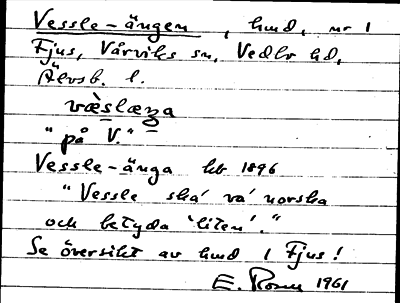 Vessle-ängen, hmd, nr 1
Fjus, Vårviks sn, Vedbo hd,
Älvsb. l.
væ̀slæŋa
"på V."
Vessle-änga hk 1896
"Vessle ska' va' norska
och betyda 'liten'."
Se översikt av hmd 1 Fjus!
E. 1961